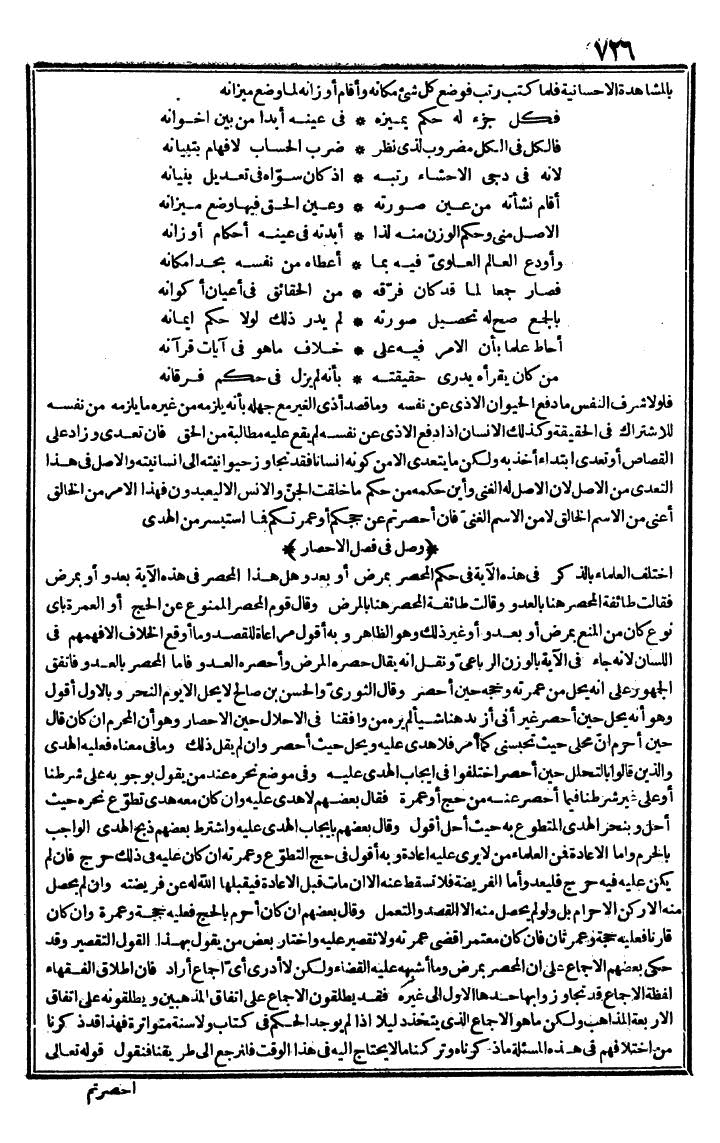 ٧٢٦
بالمشاهدة الاحسانية فلما كتب رتب فوضع كل شئ مكانه وأقام أوزانه لما وضع ميزانه
فكل جزء له حكم يميزه * فى عينه أبدا من بين اخوانه
فالكل فى الكل مضروب لذى نظر * ضرب الحساب لافهام بتبيانه
لانه فى دجى الاحشاء رتبه * اذ كان سوّاه فى تعديل بنيانه
أقام نشأته من عين صورته * وعين الحق فيها وضع ميزانه
الاصل منى وحكم الوزن منه لذا * أبدته فى عينه أحكام أوزانه
وأودع العالم العلوىّ فيه بما * أعطاه من نفسه بحد امكانه
فصار جمعا لما قد كان فرّقه * من الحقائق فى أعيان أكوانه
بالجمع صح له تحصيل صورته * لم يدر ذلك لولا حكم ايمانه
أحاط علما بأن الامر فيه على * خلاف ماهو فى آيات قرآنه
من كان يقرأه يدرى حقيقته * بأنه لم يزل فى حكم فرقانه
فلولا شرف النفس ما دفع الحيوان الاذى عن نفسه وما قصد أذى الغير مع جهله بأنه يلزمه من غيره ما يلزمه من نفسه
للاشتراك فى الحقيقة وكذلك الانسان اذا دفع الاذى عن نفسه لم يقع عليه مطالبة من الحق فان تعدى وزاد على
القصاص أو تعدى ابتداء أخذ به ولكن ما يتعدى الا من كونه انسانا فقد تجاوز حيوانيته الى انسانيته والاصل فى هذا
التعدى من الاصل لان الاصل له الغنى وأين حكمه من حكم ما خلقت الجنّ والانس الا ليعبدون فهذا الامر من الخالق
أعنى من الاسم الخالق لا من الاسم الغنىّ فان أحصرتم عن حجكم أو عمرتكم فما استيسر من الهدى
﴿وصل فى فصل الاحصار﴾
اختلف العلماء بالذكر فى هذه الآية فى حكم المحصر بمرض أو بعدو وهل هذا المحصر فى هذه الآية بعدو أو بمرض
فقالت طائفة المحصر هنا بالعدو وقالت طائفة المحصر هنا بالمرض وقال قوم المحصر الممنوع عن الحج أو العمرة بأى
نوع كان من المنع بمرض أو بعدو أو غير ذلك وهو الظاهر وبه أقول مراعاة للقصد وما أوقع الخلاف الا فهمهم فى
اللسان لانه جاء فى الآية بالوزن الرباعىّ ونقل انه يقال حصره المرض وأحصره العدو فاما المحصر بالعدو فاتفق
الجمهور على انه يحل من عمرته وحجه حين أحصر وقال الثورىّ والحسن بن صالح لا يحل الا يوم النحر وبالاول أقول
وهو أنه يحل حين أحصر غير أنى أزيد هنا شيأ لم يره من وافقنا فى الاحلال حين الاحصار وهو أن المحرم ان كان قال
حين أحرم انّ محلى حيث تحبسنى كما أمر فلا هدى عليه ويحل حيث أحصر وان لم يقل ذلك وما فى معناه فعليه الهدى
والذين قالوا بالتحلل حين أحصر اختلفوا فى ايجاب الهدى عليه وفى موضع نحره عند من يقول بوجوبه على شرطنا
أو على غير شرطنا فيما أحصر عنه من حج أو عمرة فقال بعضهم لا هدى عليه وان كان معه هدى تطوّع نحره حيث
أحل وبنحر الهدى المتطوع به حيث أحل أقول وقال بعضهم بايجاب الهدى عليه واشترط بعضهم ذبح الهدى الواجب
بالحرم واما الاعادة فمن العلماء من لا يرى عليه اعادة وبه أقول فى حج التطوّع وعمرته ان كان عليه فى ذلك حرج فان لم
يكن عليه فيه حرج فليعد وأما الفريضة فلا تسقط عنه الا ان مات قبل الاعادة فيقبلها الله له عن فريضته وان لم يحصل
منه الا ركن الاحرام بل ولو لم يحصل منه الا القصد والتعمل وقال بعضهم ان كان أحرم بالحج فعليه حجة وعمرة وان كان
قارنا فعليه حجة وعمرتان فان كان معتمرا قضى عمرته ولا تقصير عليه واختار بعض من يقول بهذا القول التقصير وقد
حكى بعضهم الاجماع على ان المحصر بمرض وما أشبهه عليه القضاء ولكن لا أدرى أىّ اجماع أراد فان اطلاق الفقهاء
لفظة الاجماع قد تجاوزوا بها حدها الاول الى غيره فقد يطلقون الاجماع على اتفاق المذهبين ويطلقونه على اتفاق
الاربعة المذاهب ولكن ماهو الاجماع الذى يتخذ دليلا اذا لم يوجد الحكم فى كتاب ولا سنة متواترة فهذا قد ذكرنا
من اختلافهم فى هذه المسئلة ما ذكرناه وتركنا ما لا يحتاج اليه فى هذا الوقت فلنرجع الى طريقنا فنقول قوله تعالى
احصرتم